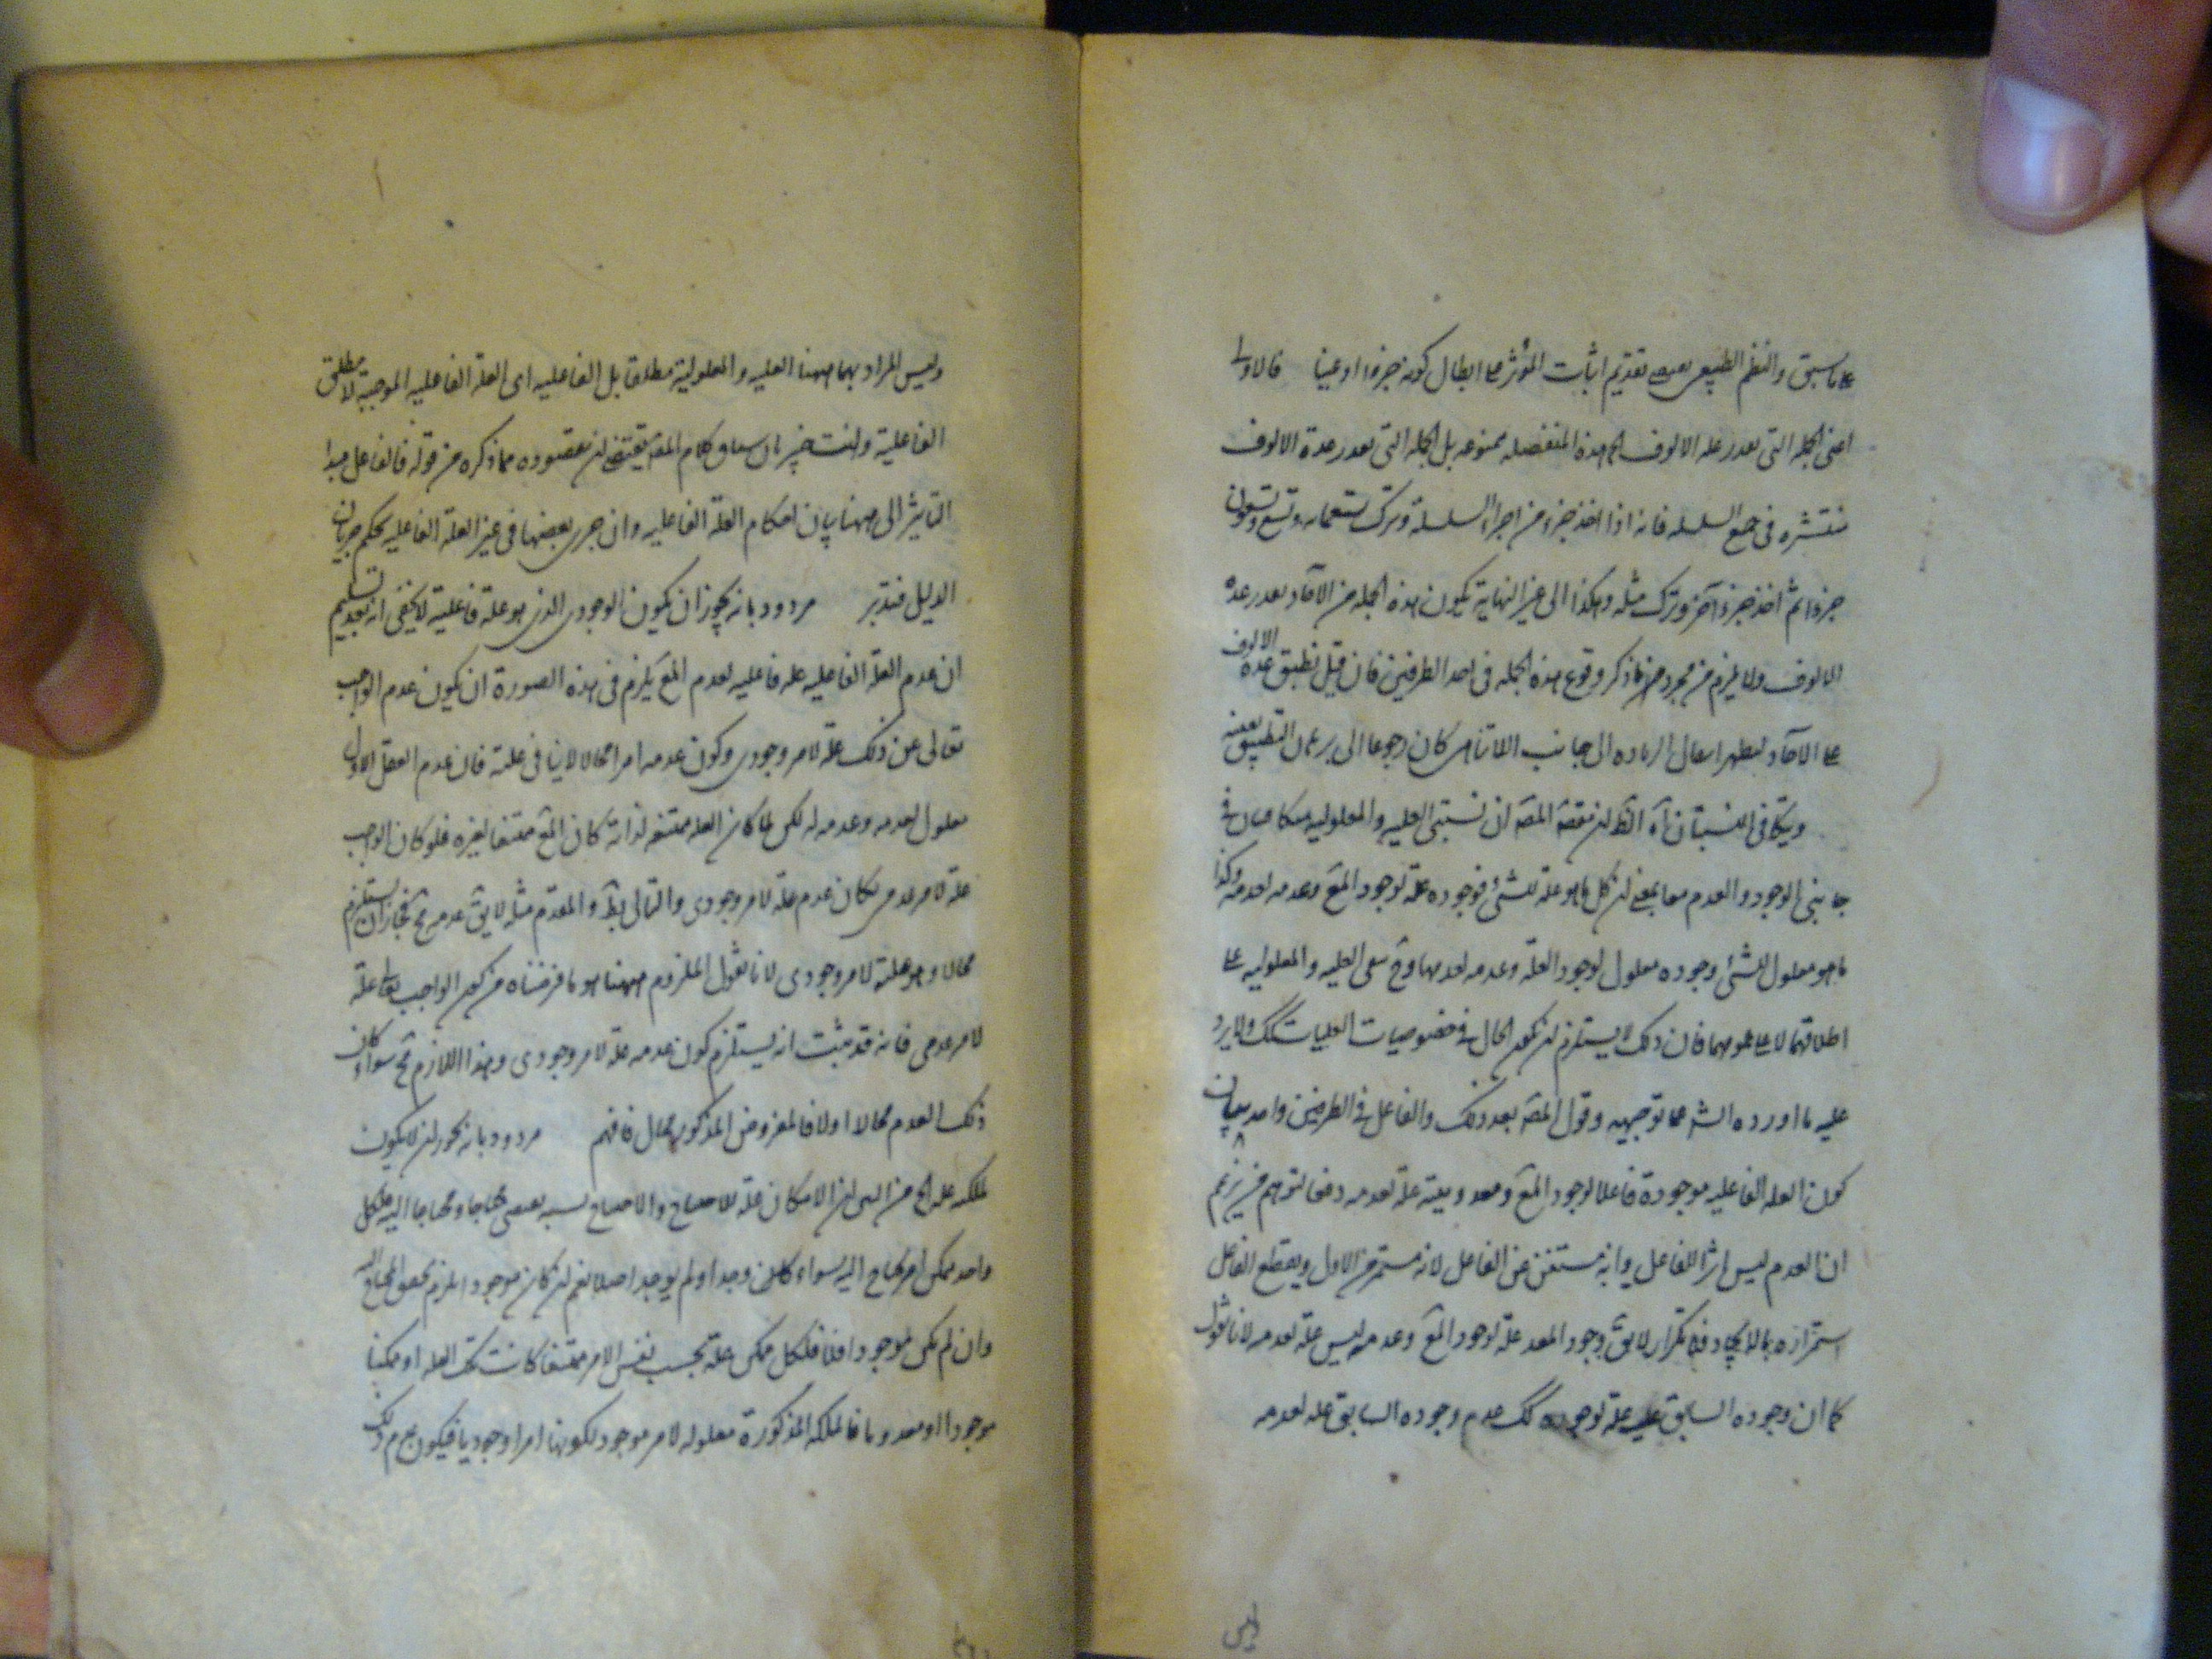 ما سبق والنظم الطبيعى يقتضى تقديم اثبات المؤثر على ابطال كونه جزءا او عينا فالاولى
اعنى الجملة التى بعدر عدة الالوف الى هذه المنفصله ممنوعه بل الجملة التى بعدر عدة الالوف
منتشره فى جميع السلسله فانه اذا اخذ جزء من اجزاء السلسلة وترك تسعمايه وتسع وتسعون
جزءا ثم اخذ جزء آخر وترك مثله وهكذا الى غير النهاية يكون هذه الجمله من الآحاد بعدر عدة
الالوف ولا يلزم من مجرد ما ذكر وقوع هذه الجمله فى احد الطرفين فان قيل نطبق عدة الالوف
على الآحاد ليظهر انتقال الزياده الى جانب اللاتناهى كان رجوعا الى برهان التطبيق بعينه
ويتكافى النسبتان آه الظ ان مقصد المص ان نسبتى العليه والمعلوليه متكافيتان فى
جانبى الوجود والعدم معا بمعنى ان كل ما هو علة للشئ فوجوده علة لوجود المع وعدمه لعدمه وكذا
ما هو معلول للشئ وجوده معلول لوجود العلة وعدمه لعدمها وح تبقى العليه والمعلوليه على
اطلاقهما لا على عمومهما فان ذلك لا يستلزم ان يكون الحال فى خصوصيات العليات كك ولا يرد
عليه ما اورده الش وقول المص بعد ذلك والفاعل فى الطرفين واحد بيان
كون العله الفاعليه موجودة فاعلا لوجود المع ومعدوميته علة لعدمه دفعا لتوهم من يزعم
ان العدم ليس اثرا للفاعل وانه مستغن عن الفاعل لانه مستمر من الاول ويقطع الفاعل
استمراره بالايجاد فلا تكرار لا يق وجود المعد علة لوجود المع وعدمه ليس علة لعدمه لانا نقول
كما ان وجوده السابق علة لوجوده كك عدم وجوده السابق علة لعدمه
وليس
وليس المراد بهما ههنا العليه والمعلولية مطلقا بل الفاعليه اى العلة الفاعليه الموجبة لا مطلق
الفاعلية وانت خبير بان سياق كلام المص يقتضى ان مقصوده مما ذكره من قوله فالفاعل مبدا
التاثير الى ههنا بيان احكام العلة الفاعليه وان جرى بعضها فى غير العلة الفاعليه بحكم جريان
الدليل فتدبر مردود بانه يجوز ان يكون الوجودى الذى هو علة فاعلية لا يخفى انه بعد تسليم
ان عدم العلة الفاعليه علة فاعليه لعدم المع يلزم فى هذه الصورة ان يكون عدم الواجب
تعالى عن ذلك علة لامر وجودى وكون عدمه امرا محالا لا ينافى علته فان عدم العقل الاول
معلول لعدمه وعدمه له لكن لما كان العله ممتنعه لذاته كان المع ممتنعا لغيره فلو كان الواجب
علة لامر عدمى لكان عدم علة لامر وجودى والتالى بط والمقدم مثله لا يق عدمه مح فجاز ان يستلزم
محالا وهو علة لامر وجودى لانا نقول الملزوم ههنا هو ما فرضناه من كون الواجب تعا علة
لامر عدمى فانه قد ثبت انه يستلزم كون عدمه علة لامر وجودى وهذا اللازم مح سواء كان
ذلك العدم محالا اولا فالمفروض المذكور محال فافهم مردود بانه يجوز ان لا يكون
لملكه علة من البين ان الامكان علة للاحتياج والاحتياج نسبه يقتضى محتاجا ومحتاجا اليه فلكل
واحد ممكن امر يحتاج اليه سواء كان وجد او لم يوجد اصلا نعم ان كان موجودا لزم تحقق المحتاج اليه
وان لم يكن موجودا فلا فلكل ممكن علة بحسب نفس الامر ممتنعا كانت تلك العله او ممكنا
موجودا او معدوما فالملكه المذكورة معلوله لامر موجود لكونها امرا وجوديا فيكون عدم ذلك